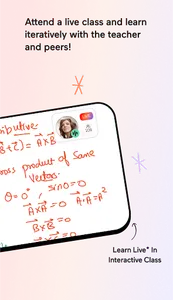 Attend a live class and learn
iteratively with the teacher
and peers!
ibutive
B+C) = A×B
LIVE
oss product of Same
Vectors.
θ=0° , sinθ=0
A×A=0 A·A=A²
B×B=0
Learn Live* In
Interactive Class